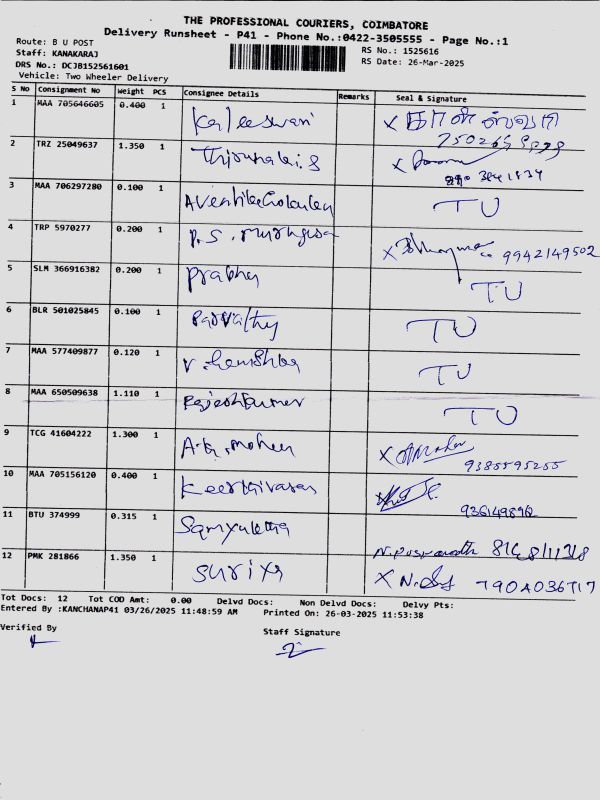 THE PROFESSIONAL COURIERS, COIMBATORE
Delivery Runsheet - P41 - Phone No.:0422-3505555 - Page No.:1
Route: B U POST
RS No.: 1525616
Staff: KANAKARAJ
RS Date: 26-Mar-2025
DRS No.: DCJB152561601
Vehicle: Two Wheeler Delivery
S No Consignment No Weight PCS Consignee Details Remarks Seal & Signature
1 MAA 705646605 0.400 1 Kaleeswari
2 TRZ 25049637 1.350 1 Thirumalai.S
3 MAA 706297280 0.100 1 TU
4 TRP 5970277 0.200 1 P.S. 9942149502
5 SLM 366916382 0.200 1 Prabhu TU
6 BLR 501025845 0.100 1 Parvathy TU
7 MAA 577409877 0.120 1 TU
8 MAA 650509638 1.110 1 Rajeshkumar TU
9 TCG 41604222 1.300 1 9385595255
10 MAA 705156120 0.400 1 Keerthivasan
11 BTU 374999 0.315 1 Samyuktha
12 PMK 281866 1.350 1 Suriya
Tot Docs: 12 Tot COD Amt: 0.00 Delvd Docs: Non Delvd Docs: Delvy Pts:
Entered By :KANCHANAP41 03/26/2025 11:48:59 AM Printed On: 26-03-2025 11:53:38
Verified By
Staff Signature